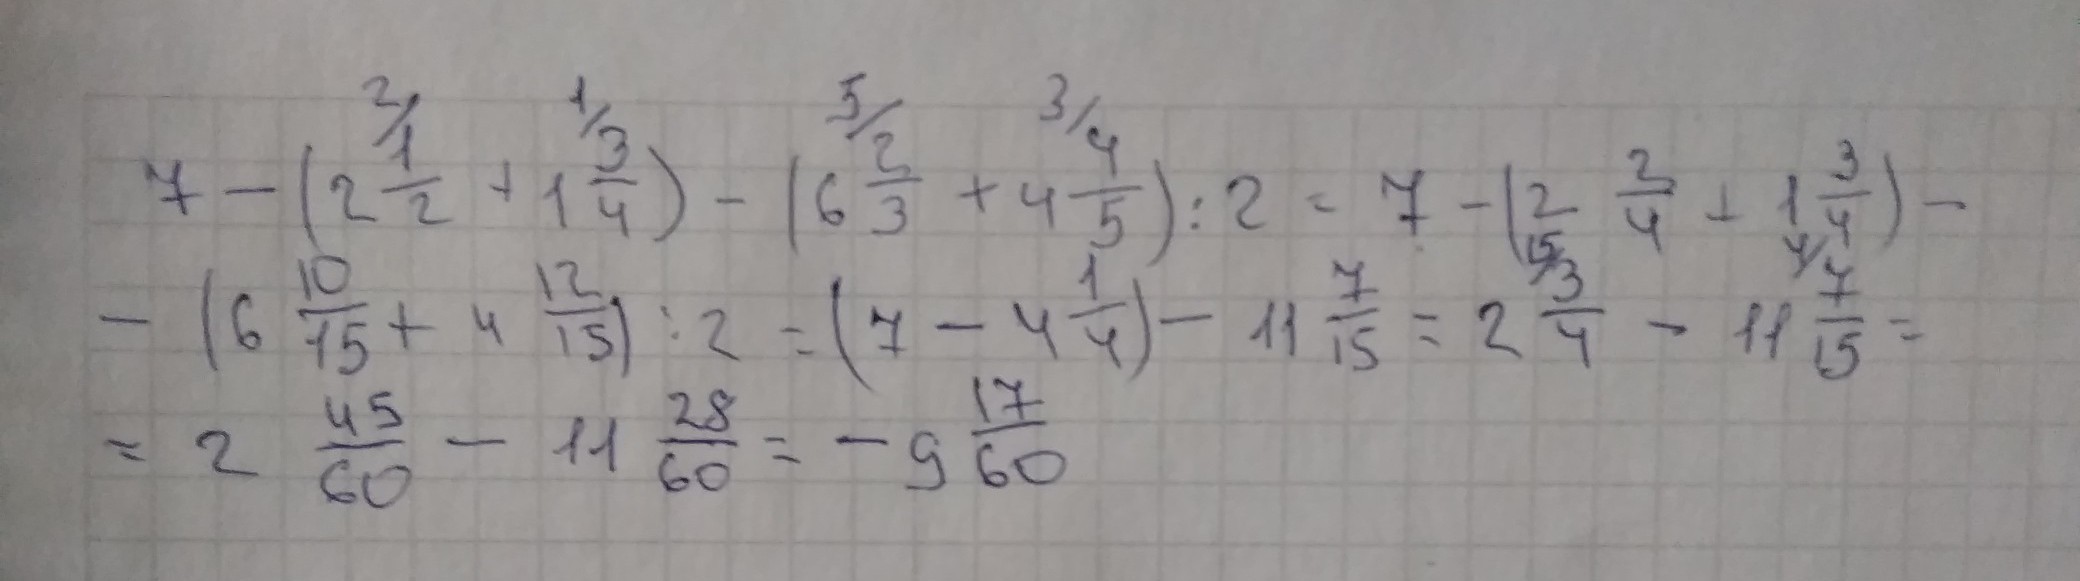 7 - (2 2/ 1/2 + 1 1/ 3/4) - (6 5/ 2/3 + 4 3/ 4/5) : 2 = 7 - (2 2/4 + 1 3/4) -
- (6 10/15 + 4 12/15) : 2 = (7 - 4 1/4) - 11 7/15 = 2 15/ 3/4 - 11 4/ 7/15 =
= 2 45/60 - 11 28/60 = - 9 17/60